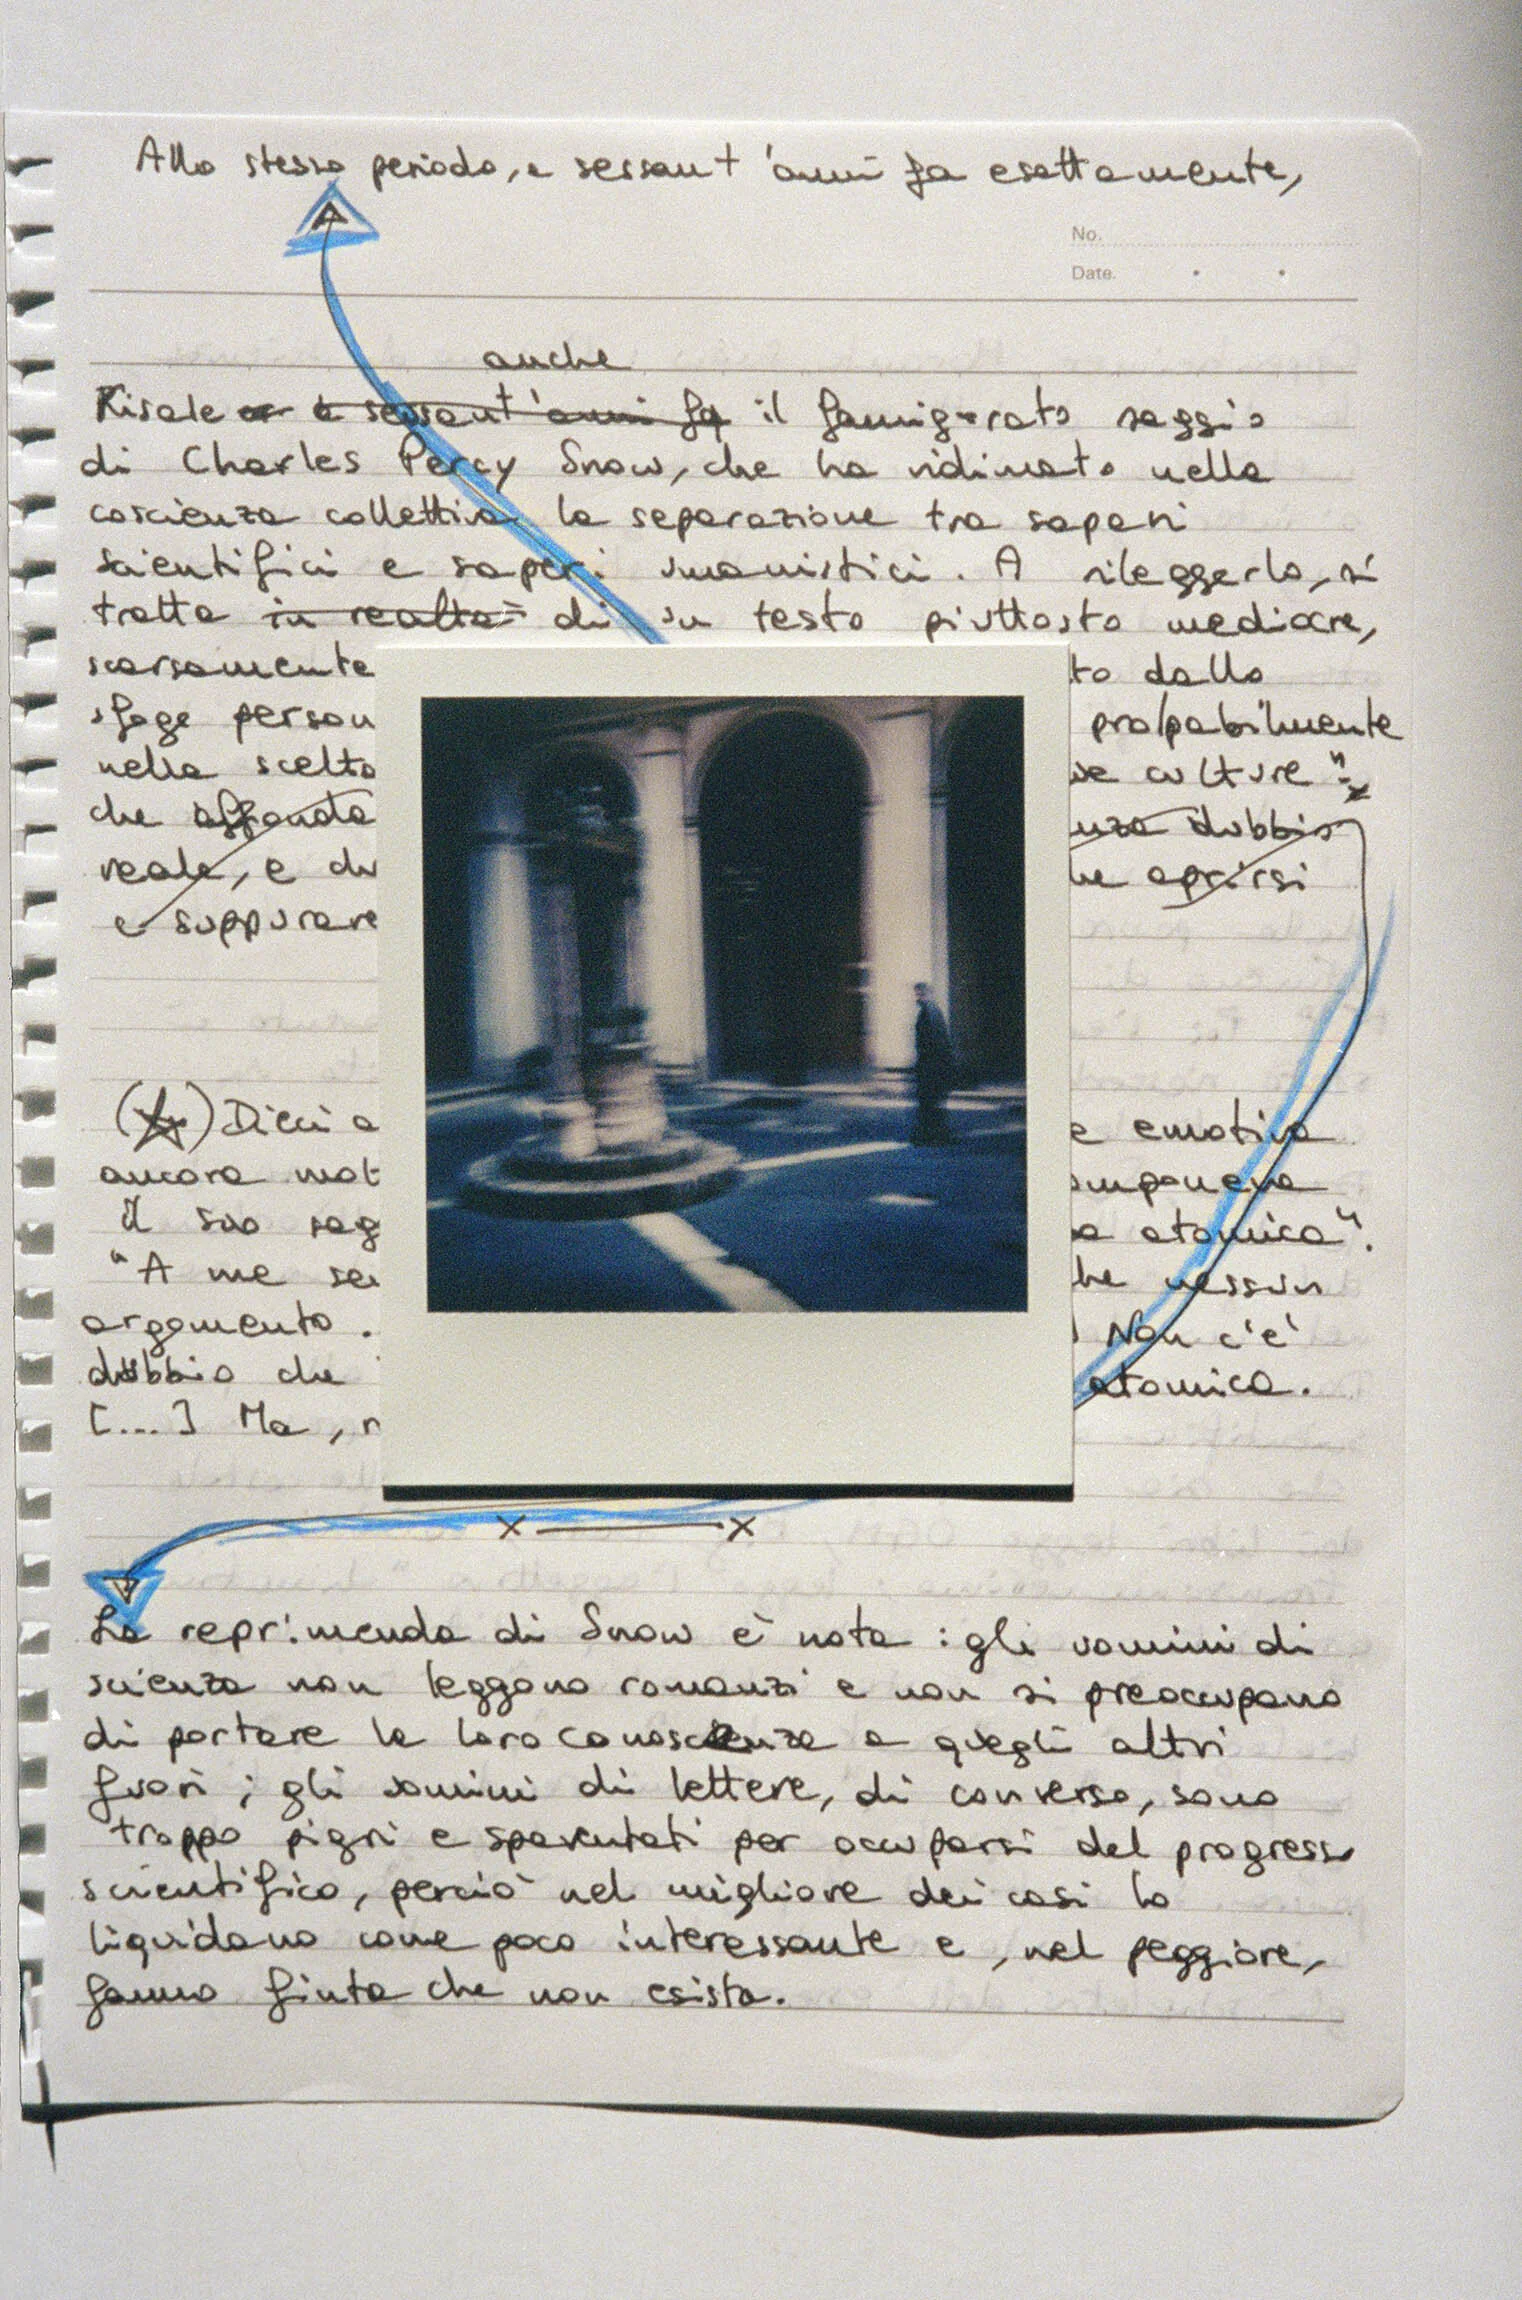 Allo stesso periodo, a sessant'anni fa esattamente,
No.
Date.
anche
Risale a sessant'anni fa il famigerato saggio
di Charles Percy Snow, che ha vidimato nella
coscienza collettiva la separazione tra saperi
scientifici e saperi umanistici. A rileggerlo, si
tratta in realtà di un testo piuttosto mediocre,
scarsamente to dalla
sfage person probabilmente
nella scelta ue culture"
che affonda nza dubbio
reale, e du he aprirsi
e suppurare
(☆) Dieci a e emotiva
ancora mot omponeva
il suo sag ba atomica".
"A me se he nessun
argomento. Non c'è
dubbio che atomica.
[...] Ma, n
x — x
La reprimenda di Snow è nota: gli uomini di
scienza non leggono romanzi e non si preoccupano
di portare la loro conoscenza a quegli altri
fuori; gli uomini di lettere, di converso, sono
troppo pigri e spaventati per occuparsi del progresso
scientifico, perciò nel migliore dei casi lo
liquidano come poco interessante e, nel peggiore,
fanno finta che non esista.